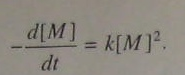 -\frac{d[M]}{dt} = k[M]^2.